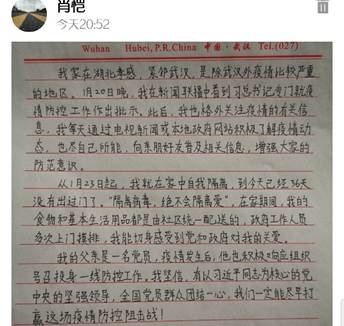 肖恺
今天20:52
Wuhan Hubei, P.R.China 中国·武汉 Tel.(027)
我家在湖北孝感，紧邻武汉，是除武汉外疫情比较严重
的地区。1月20日晚，我在新闻联播中看到习总书记专门就疫
情防控工作作出批示。此后，我也格外关注疫情的有关信
息，我每天通过电视新闻或本地政府网站积极了解疫情动
态，也尽自己所能，向亲朋好友普及相关信息，增强大家的
防范意识。
从1月23日起，我就在家中自我隔离，到今天已经36天
没有出过门了，"隔离病毒，绝不会隔离爱"，在家期间，我的
食物和基本生活用品都是由社区统一配送的，政府工作人员
多次上门摸排，我能切身感受到党和政府对我的关爱。
我的父亲是一名党员，疫情发生后，他也积极响应组织
号召投身一线防控工作。我坚信，有以习近平同志为核心的党
中央的坚强领导，全国党员群众团结一心，我们一定能尽早打
赢这场疫情防控阻击战！